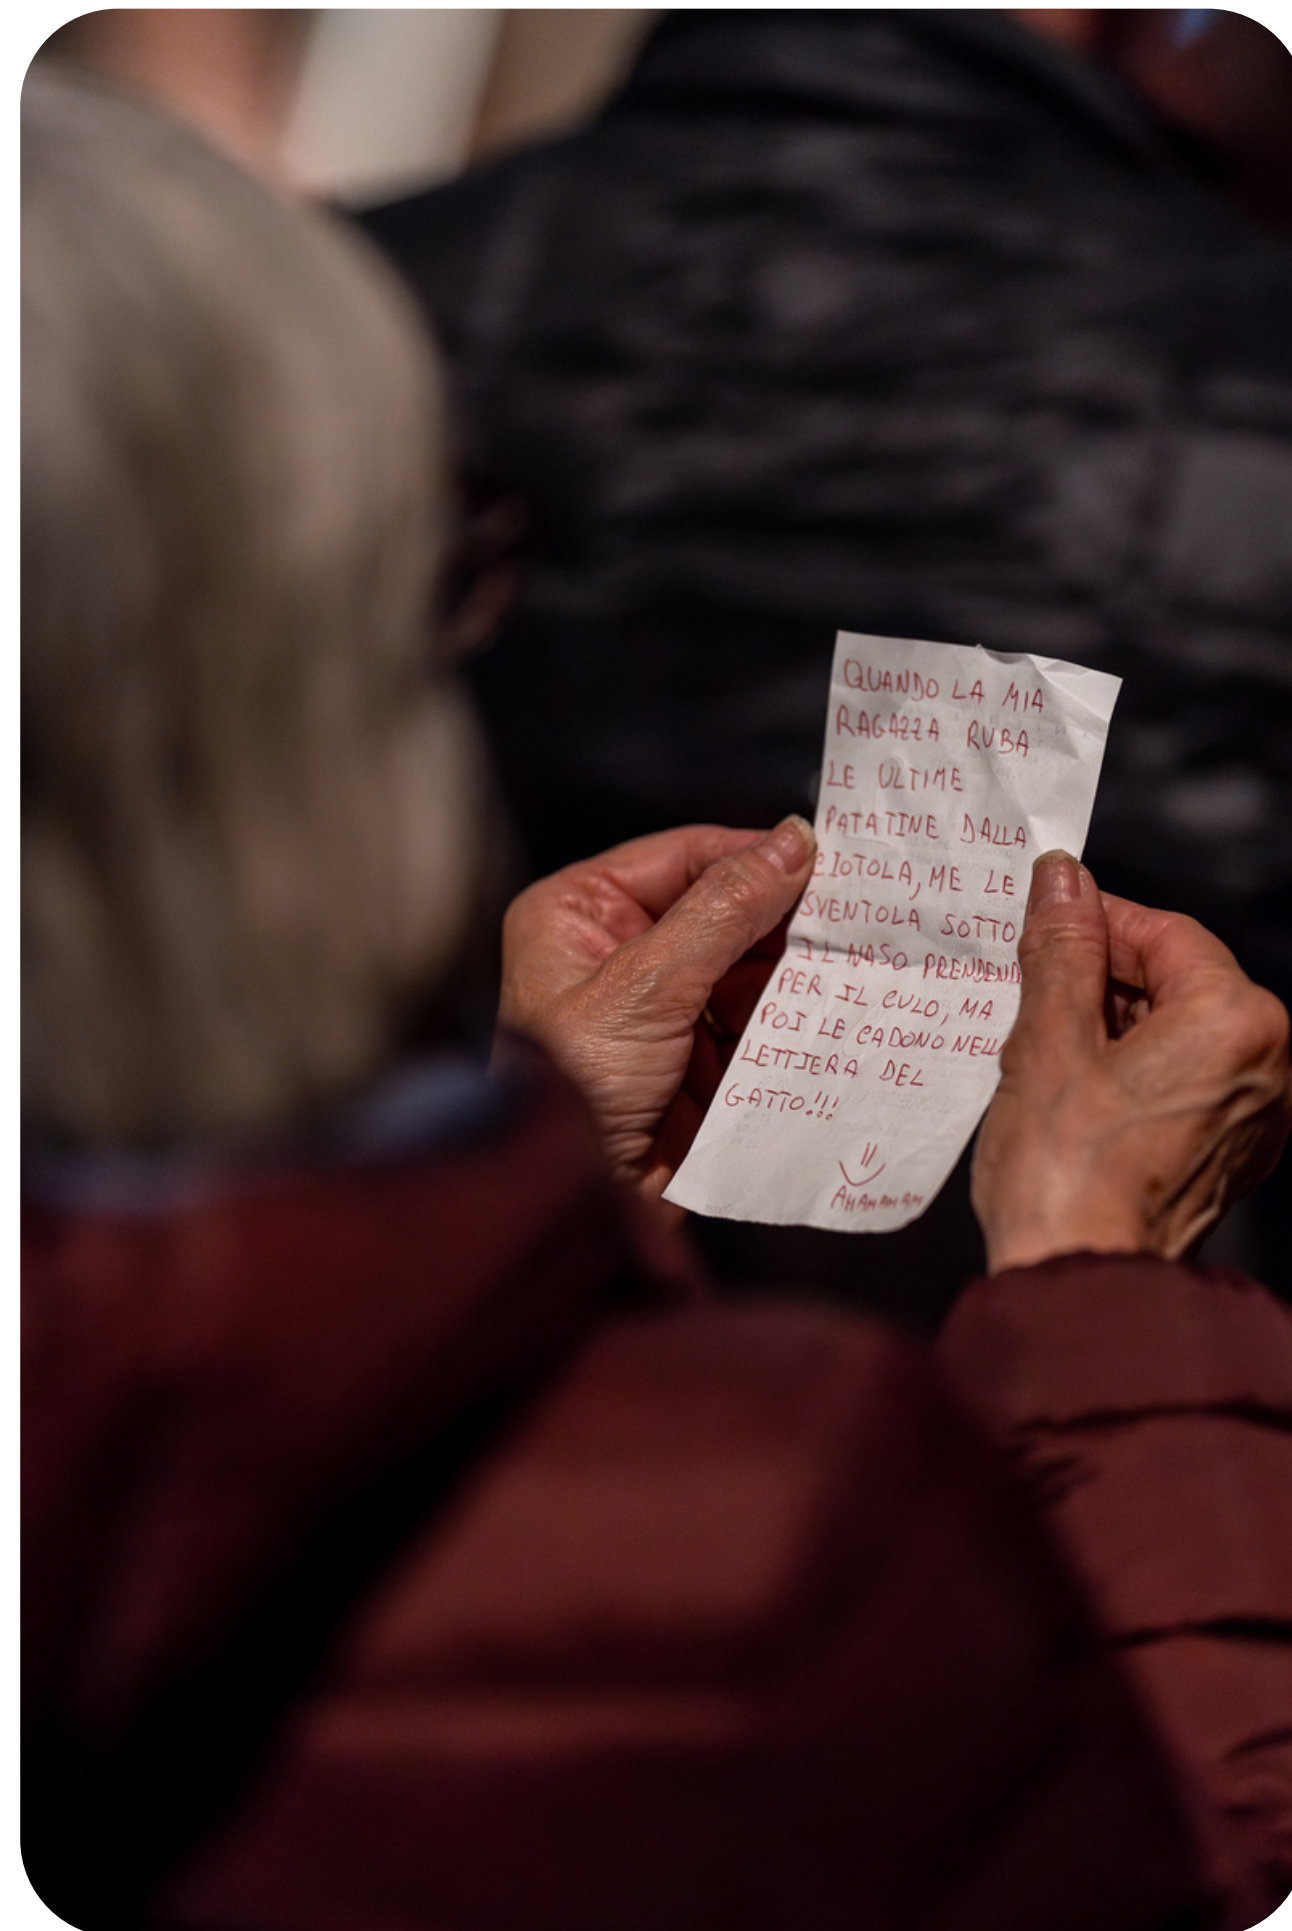 QUANDO LA MIA
RAGAZZA RUBA
LE ULTIME
PATATINE DALLA
CIOTOLA, ME LE
SVENTOLA SOTTO
IL NASO PRENDEND
PER IL CULO, MA
POI LE CADONO NELL
LETTIERA DEL
GATTO!!!
AHAHAHAH